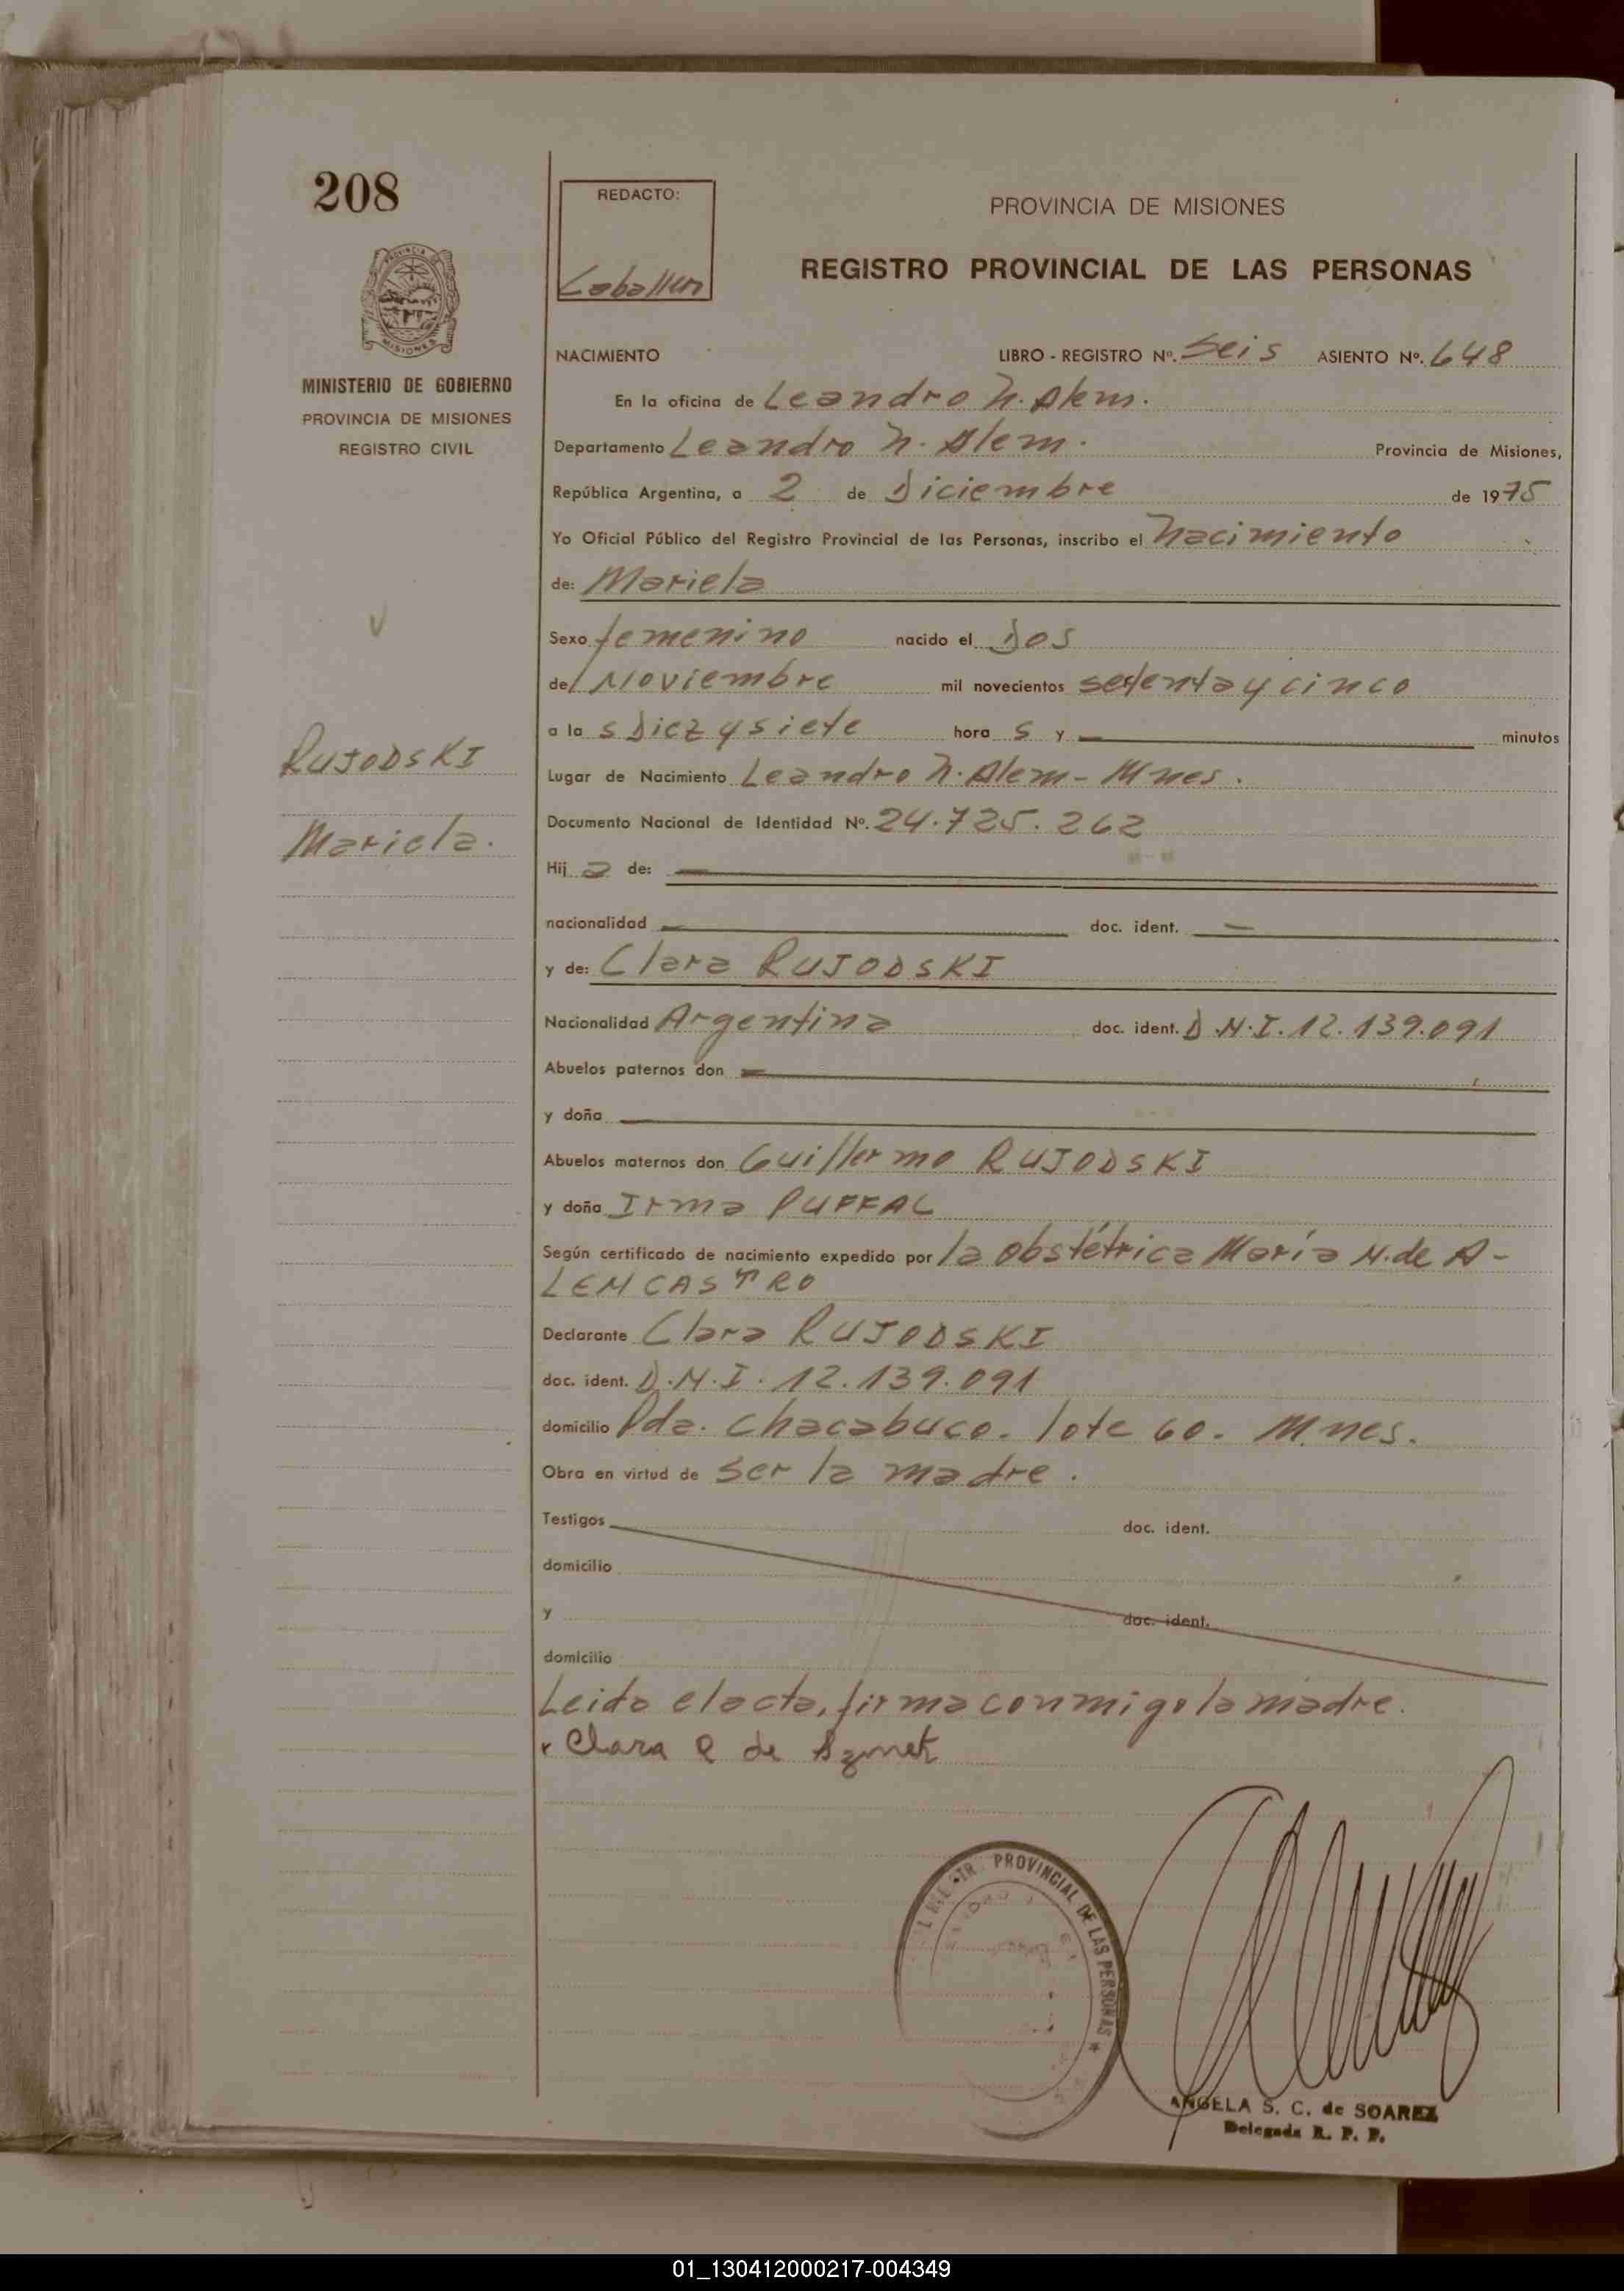 208
REDACTO:
Caballero
PROVINCIA DE MISIONES
REGISTRO PROVINCIAL DE LAS PERSONAS
PROVINCIA DE
MISIONES
MINISTERIO DE GOBIERNO
PROVINCIA DE MISIONES
REGISTRO CIVIL
NACIMIENTO LIBRO - REGISTRO Nº. Seis ASIENTO Nº. 648
En la oficina de Leandro N. Alem.
Departamento Leandro N. Alem. Provincia de Misiones,
República Argentina, a 2 de Diciembre de 1975
Yo Oficial Público del Registro Provincial de las Personas, inscribo el Nacimiento
de: Mariela
Sexo femenino nacido el Dos
de Noviembre mil novecientos setenta y cinco
a la s Diez y siete hora s y — minutos
RUJODSKI
Mariela.
Lugar de Nacimiento Leandro N. Alem - Mnes.
Documento Nacional de Identidad Nº. 24.725.262
Hij a de: —
nacionalidad — doc. ident. —
y de: Clara RUJODSKI
Nacionalidad Argentina doc. ident. D.N.I. 12.139.091
Abuelos paternos don —
y doña —
Abuelos maternos don Guillermo RUJODSKI
y doña Irma PUFFAL
Según certificado de nacimiento expedido por la obstétrica María N. de A-
LENCASTRO
Declarante Clara RUJODSKI
doc. ident. D.N.I. 12.139.091
domicilio Pda. Chacabuco. lote 60. Mnes.
Obra en virtud de ser la madre.
Testigos doc. ident.
domicilio
y doc. ident.
domicilio
Leida el acta, firma conmigo la madre.
Clara R de
PROVINCIAL DE LAS PERSONAS
ANGELA S. C. de SOAREZ
Delegada R. P. P.
01_130412000217-004349